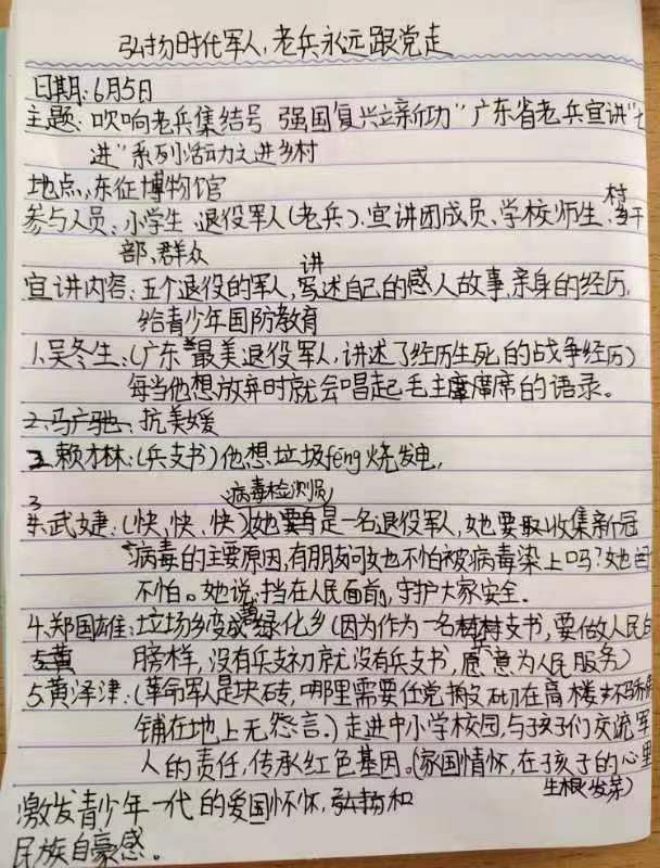 弘扬时代军人,老兵永远跟党走
日期:6月5日
主题:吹响老兵集结号 强国复兴立新功"广东省老兵宣讲"七
进"系列活动之进乡村
地点:东征博物馆
参与人员:小学生、退役军人(老兵)、宣讲团成员、学校师生、村干
部、群众
宣讲内容:五个退役的军人,讲述自己的感人故事,亲身的经历,
给青少年国防教育
1.吴冬生:(广东"最美退役军人,讲述了经历生死的战争经历)
每当他想放弃时就会唱起毛主席的语录。
2.马广驰、抗美媛
2.赖林:(兵支书)他想垃圾féng烧发电,
病毒检测员
3.武婕:(快、快、快)她是一名退役军人,她要取收集新冠
病毒的主要原因,有朋友问她不怕被病毒染上吗?她回
不怕。她说:挡在人民面前,守护大家安全.
4.郑国雄:垃场乡变成碧绿化乡(因为作为一名村支书,要做人民的
膀样,没有兵支初就没有兵支书,愿意为人民服务)
5.黄泽津:(革命军人是块砖,哪里需要任党搬,砌在高楼不骄
铺在地上无怨言.)走进中小学校园,与孩子们交流军
人的责任,传承红色基因。(家国情怀,在孩子的心里
生根发芽)
激发青少年一代的爱国怀怀,弘扬和
民族自豪感。